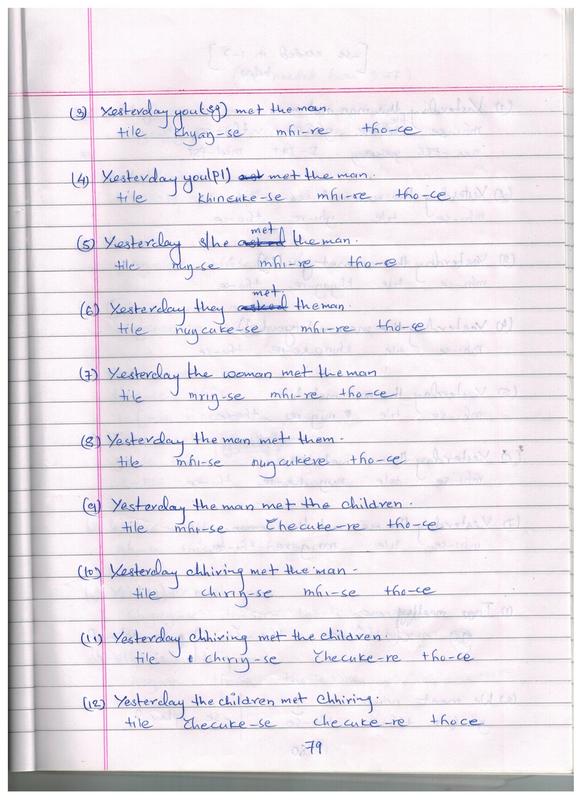 (3) Yesterday you(sg) met the man.
tile khyaŋ-se mhi-re tho-ce
(4) Yesterday you(pl) met the man.
tile khincuke-se mhi-re tho-ce
(5) Yesterday s/he met the man.
tile nuŋ-se mhi-re tho-ce
(6) Yesterday they met the man.
tile nuŋcuke-se mhi-re tho-ce
(7) Yesterday the woman met the man
tile mriŋ-se mhi-re tho-ce
(8) Yesterday the man met them.
tile mhi-se nuŋcukere tho-ce
(9) Yesterday the man met the children.
tile mhi-se checuke-re tho-ce
(10) Yesterday chhiring met the man.
tile chiriŋ-se mhi-se tho-ce
(11) Yesterday chhiring met the children.
tile chiriŋ-se checuke-re tho-ce
(12) Yesterday the children met Chhiring.
tile checuke-se checuke-re thoce
79